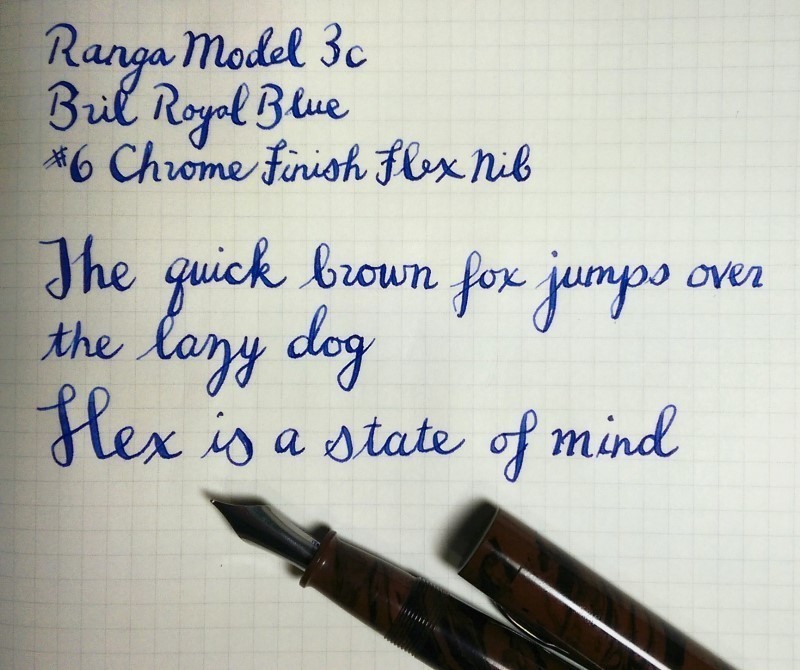 Ranga Model 3c
Bril Royal Blue
#6 Chrome Finish Flex Nib
The quick brown fox jumps over
the lazy dog
Flex is a state of mind